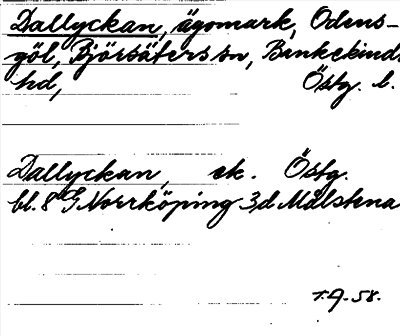 Dallyckan, ägomark, Odens-
göl, Björsäters sn, Bankekinds
hd, Östg. l.
Dallyckan, ek. Östg.
bl. 8 G Norrköping 3,d Målstena
1.9.58.